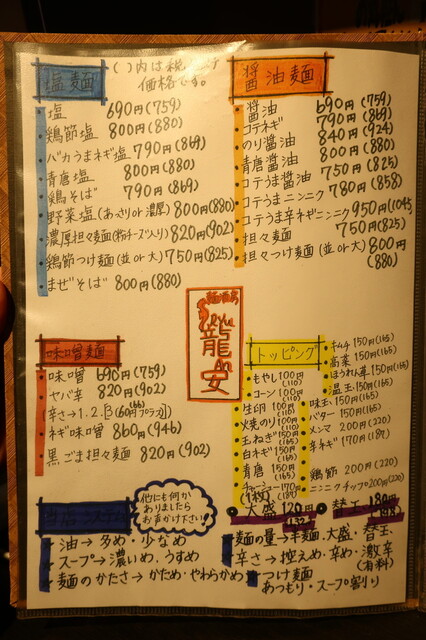 塩麺
( )内は税
価格です。
塩 690円(759)
鶏節塩 800円(880)
バカうまネギ塩 790円(869)
青唐塩 800円(880)
鶏そば 790円(869)
野菜塩(あっさりor濃厚) 800円(880)
濃厚担々麺(粉チーズ入り) 820円(902)
鶏節つけ麺(並or大) 750円(825)
まぜそば 800円(880)
醤油麺
醤油 690円(759)
コテネギ 790円(869)
のり醤油 840円(924)
青唐醤油 800円(880)
コテうま醤油 750円(825)
コテうまニンニク 780円(858)
コテうま辛ネギニンニク 950円(1045)
担々麺 750円(825)
担々つけ麺(並or大) 800円
(880)
麺酒房
龍安
味噌麺
味噌 690円(759)
ヤバ辛 820円(902)
辛さ→1.2.3(60円プラス)
(66)
ネギ味噌 860円(946)
黒ごま担々麺 820円(902)
トッピング
もやし 100円
(110)
コーン 100円
(110)
生卵 100円
(110)
焼のり 100円
(110)
玉ねぎ 150円
(165)
白ネギ 150円
(165)
青唐 150円
(165)
チャーシュー 170円
(1枚) (187)
キムチ 150円(165)
高菜 150円(165)
ほうれん草 150円(165)
温玉 150円(165)
味玉 150円(165)
バター 150円(165)
メンマ 200円(220)
辛ネギ 170円(187)
鶏節 200円(220)
ニンニクチップ 200円(220)
大盛 120円
(132)
替玉 180円
(198)
他にも何か
ありましたら
お声かけ下さい!
油→多め・少なめ
スープ→濃いめ、うすめ
麺のかたさ→かため・やわらかめ
麺の量→半麺・大盛・替玉
辛さ→控えめ・辛め・激辛
(有料)
つけ麺
あつもり・スープ割り